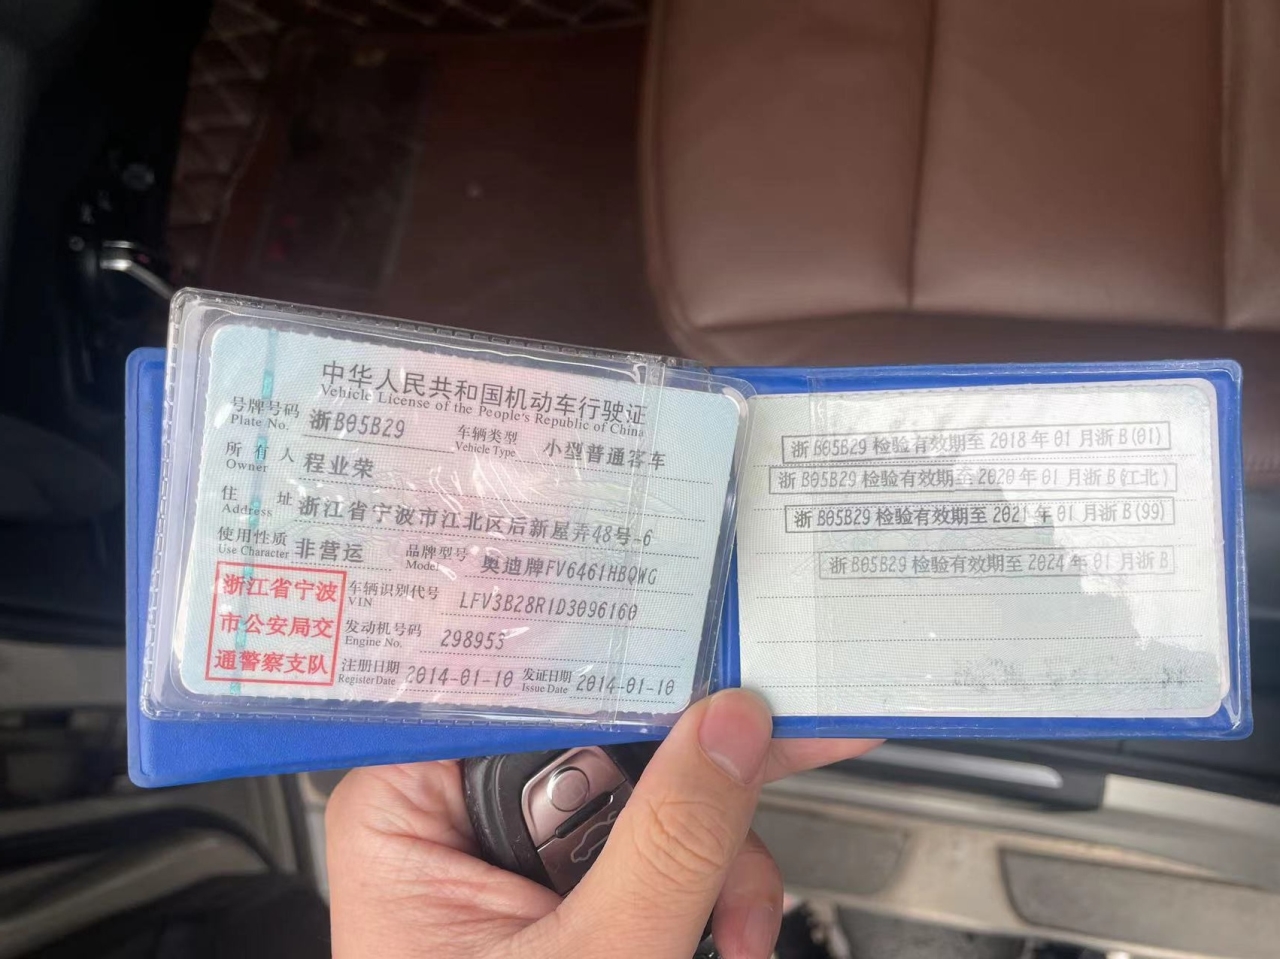 中华人民共和国机动车行驶证
Vehicle License of the People's Republic of China
号牌号码 浙B05B29 车辆类型 小型普通客车
Plate No. Vehicle Type
所有人 程业荣
Owner
住址 浙江省宁波市江北区后新屋弄48号-6
Address
使用性质 非营运 品牌型号 奥迪牌FV6461HBQWG
Use Character Model
浙江省宁波
市公安局交
通警察支队
车辆识别代号 LFV3B28R1D3096160
VIN
发动机号码 298953
Engine No.
注册日期 2014-01-10 发证日期 2014-01-10
Register Date Issue Date
浙B05B29检验有效期至2018年01月浙B(01)
浙B05B29检验有效期至2020年01月浙B(江北)
浙B05B29检验有效期至2021年01月浙B(99)
浙B05B29检验有效期至2024年01月浙B